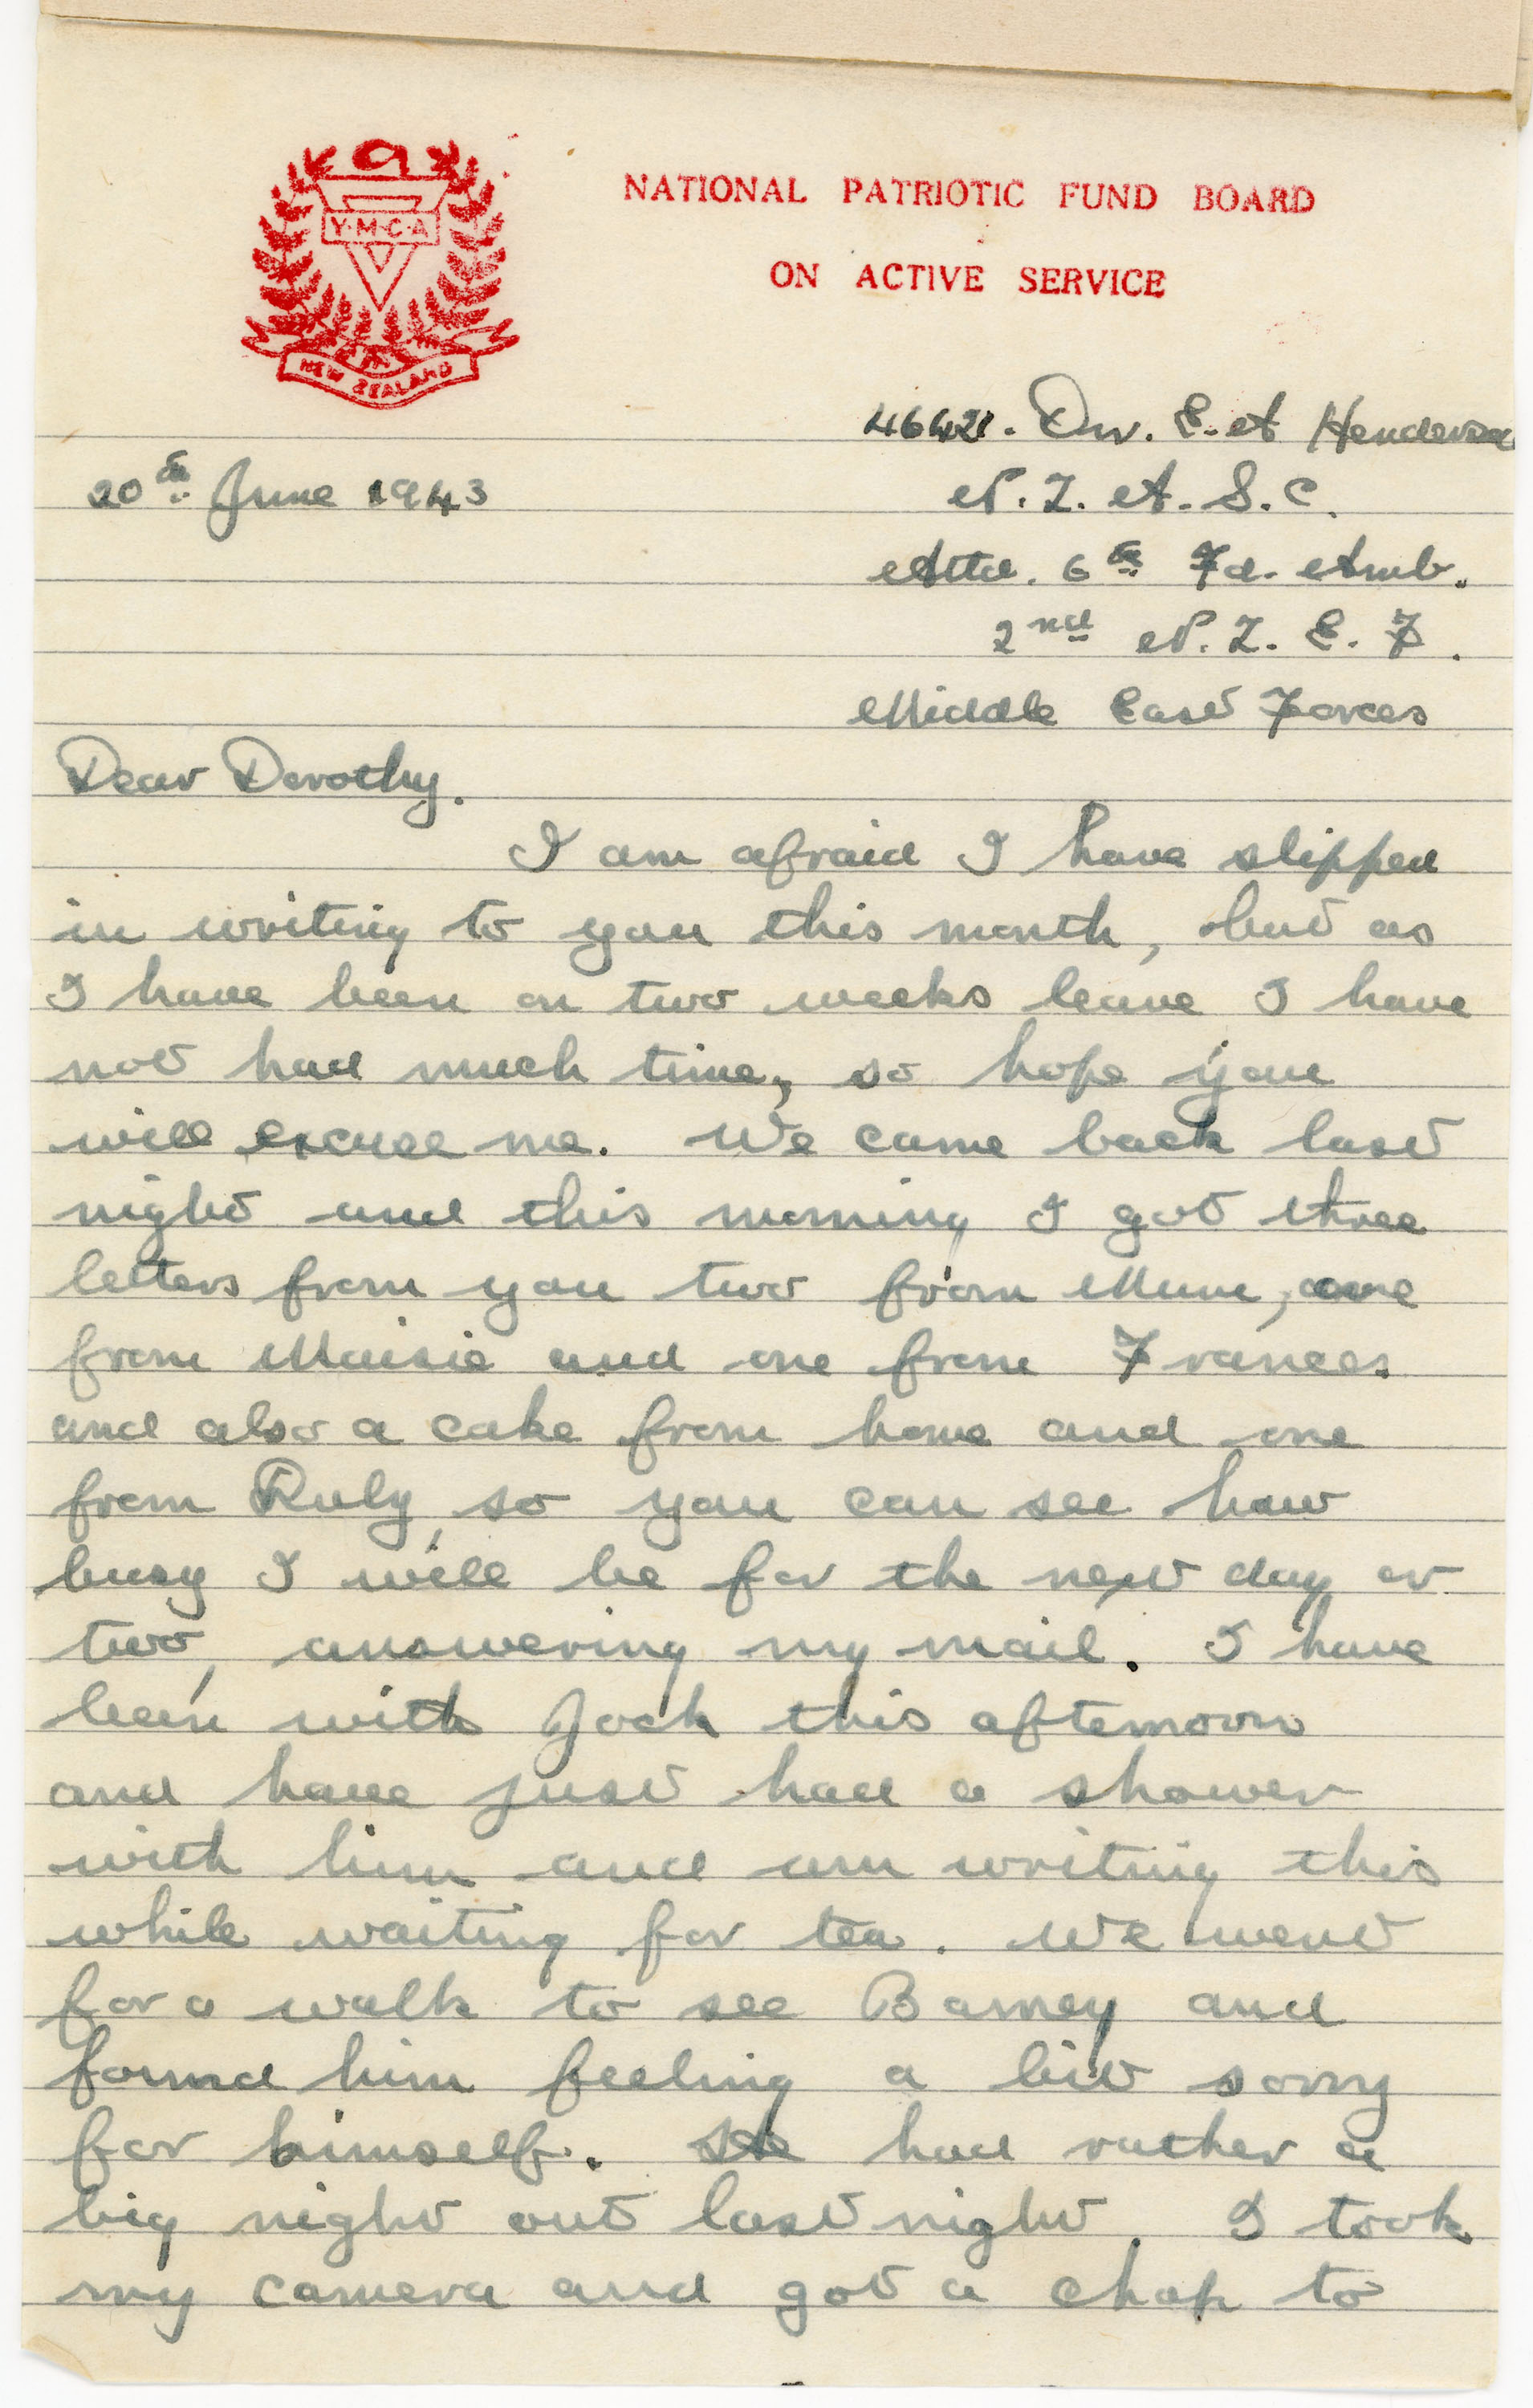 Y·M·C·A
NEW ZEALAND
NATIONAL PATRIOTIC FUND BOARD
ON ACTIVE SERVICE
46421. Dvr. E. A Henderson
N. Z. A. S. C.
20th June 1943
Attd. 6th Fd. Amb.
2nd N. Z. E. F.
Middle East Forces
Dear Dorothy.
I am afraid I have slipped
in writing to you this month, but as
I have been on two weeks leave I have
not had much time, so hope you
will excuse me. We came back last
night and this morning I got three
letters from you two from Mum, one
from Maisie and one from Frances.
and also a cake from home and one
from Ruby, so you can see how
busy I will be for the next day or
two, answering my mail. I have
been with Jock this afternoon
and have just had a shower
with him and am writing this
while waiting for tea. We went
for a walk to see Barney and
found him feeling a bit sorry
for himself. He had rather a
big night out last night. I took
my camera and got a chap to